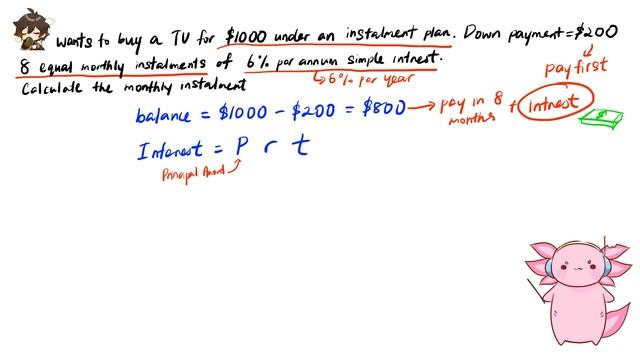 wants to buy a TV for $1000 under an instalment plan. Down payment = $200
8 equal monthly instalments of 6% per annum simple intrest.
pay first
Calculate the monthly instalment
6% per year
balance = $1000 - $200 = $800 → pay in 8 months + intrest
$
Interest = P r t
Principal Amount